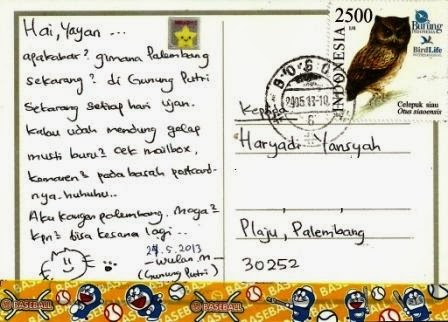 Hai, Yayan
apakabar? gimana Palembang
sekarang? di Gunung Putri
Sekarang setiap hari ujan.
kalau udah mendung gelap
musti buru2 cek mailbox,
kemaren2 pada basah postcard-
nya. huhuhu..
Aku kangen palembang. moga2
kpn2 bisa kesana lagi...
27.5.2013
- wulan.m -
(Gunung Putri)
2500
INDONESIA
Burung
INDONESIA
BirdLife
INTERNATIONAL
Celepuk siau
Otus siaoensis
Haryadi Yansyah
Plaju, Palembang
30252
BASEBALL
BASEBALL
BASEBALL
BASEBALL